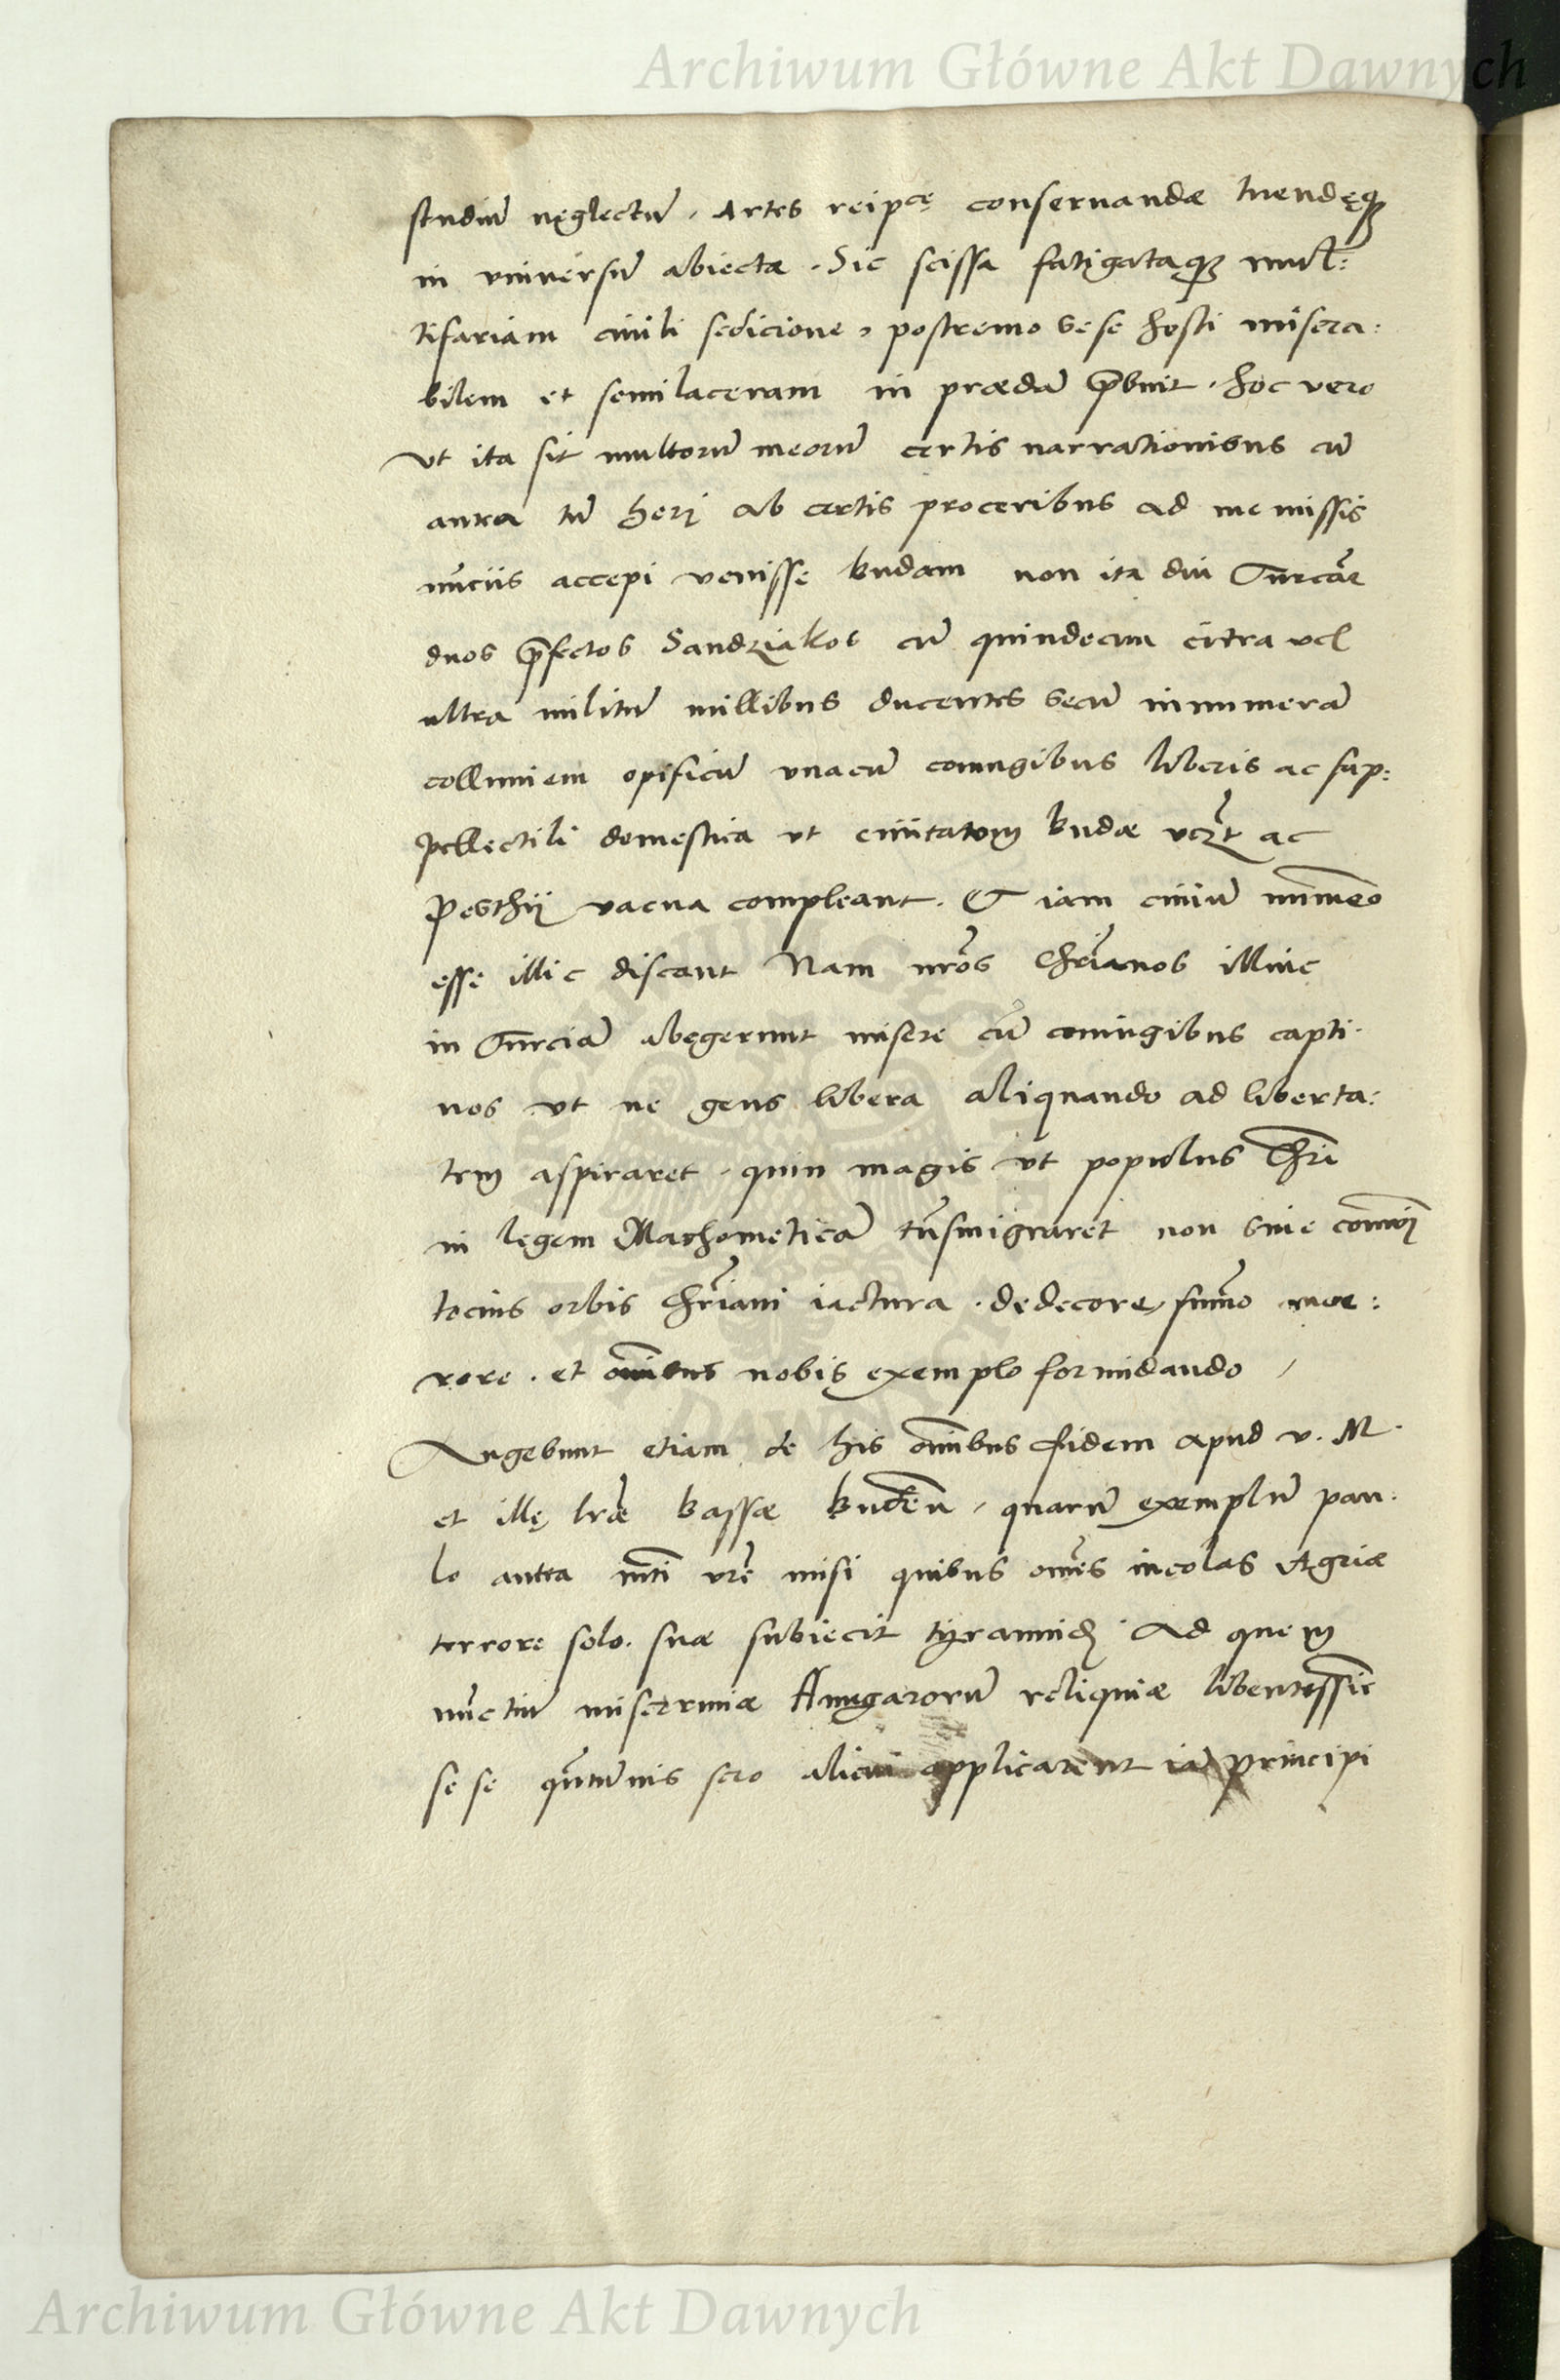 Archiwum Główne Akt Dawnych
studiũ nęglectũ, Artes reipcę conseruandæ tuendęq₃
in vniuersũ abiectæ. Sic scissa fatigataq₃ mul:
tifariam ciuili sedicione, postremo sese hosti misera:
bilem et semilaceram in prædã p̃buit. hoc vero
vt ita sit multorũ meorũ certis narrationibus cũ
antea tũ heri ab certis proceribus ad me missis
nũciis accepi venisse budam non ita diu Turcar̃
duos p̃fectos Sandziakos cũ quindecim citra vel
ultra militũ millibus ducentes secũ innumerã
colluuiem opificũ vnacũ coniugibus liberis ac sup:
pellectili domestica vt ciuitatem budæ vcz̃t ac
Pesthij vacua compleant. Et iam ciuiũ nũmero
esse illic discant Nam nr̃os Chr̃ianos illinc
in Turciã abęgerunt misere cũ coniugibus capti-
uos vt ne gens libera aliquando ad liberta:
tem aspiraret. quin magis vt populus Chr̃i
in lęgem Machometicã trãsmigraret non sine com̃uni
tocius orbis chr̃iani iactura. dedecore, sum̃o moe:
rore. et om̃ibus nobis exemplo formidando,
Augebunt etiam de his om̃ibus fidem apud v. M.
et illę lr̃æ bassæ buden̄, quarũ exemplũ pau:
lo antea mti vr̃e misi quibus om̃es incolas Agriæ
terrore solo. suæ subiecit tyrannidi. Ad quem
nũctiũ miserrimæ Hungarorũ reliquiæ libentissie
se se quãtũuis sero alicui applicarent iã principi
Archiwum Główne Akt Dawnych